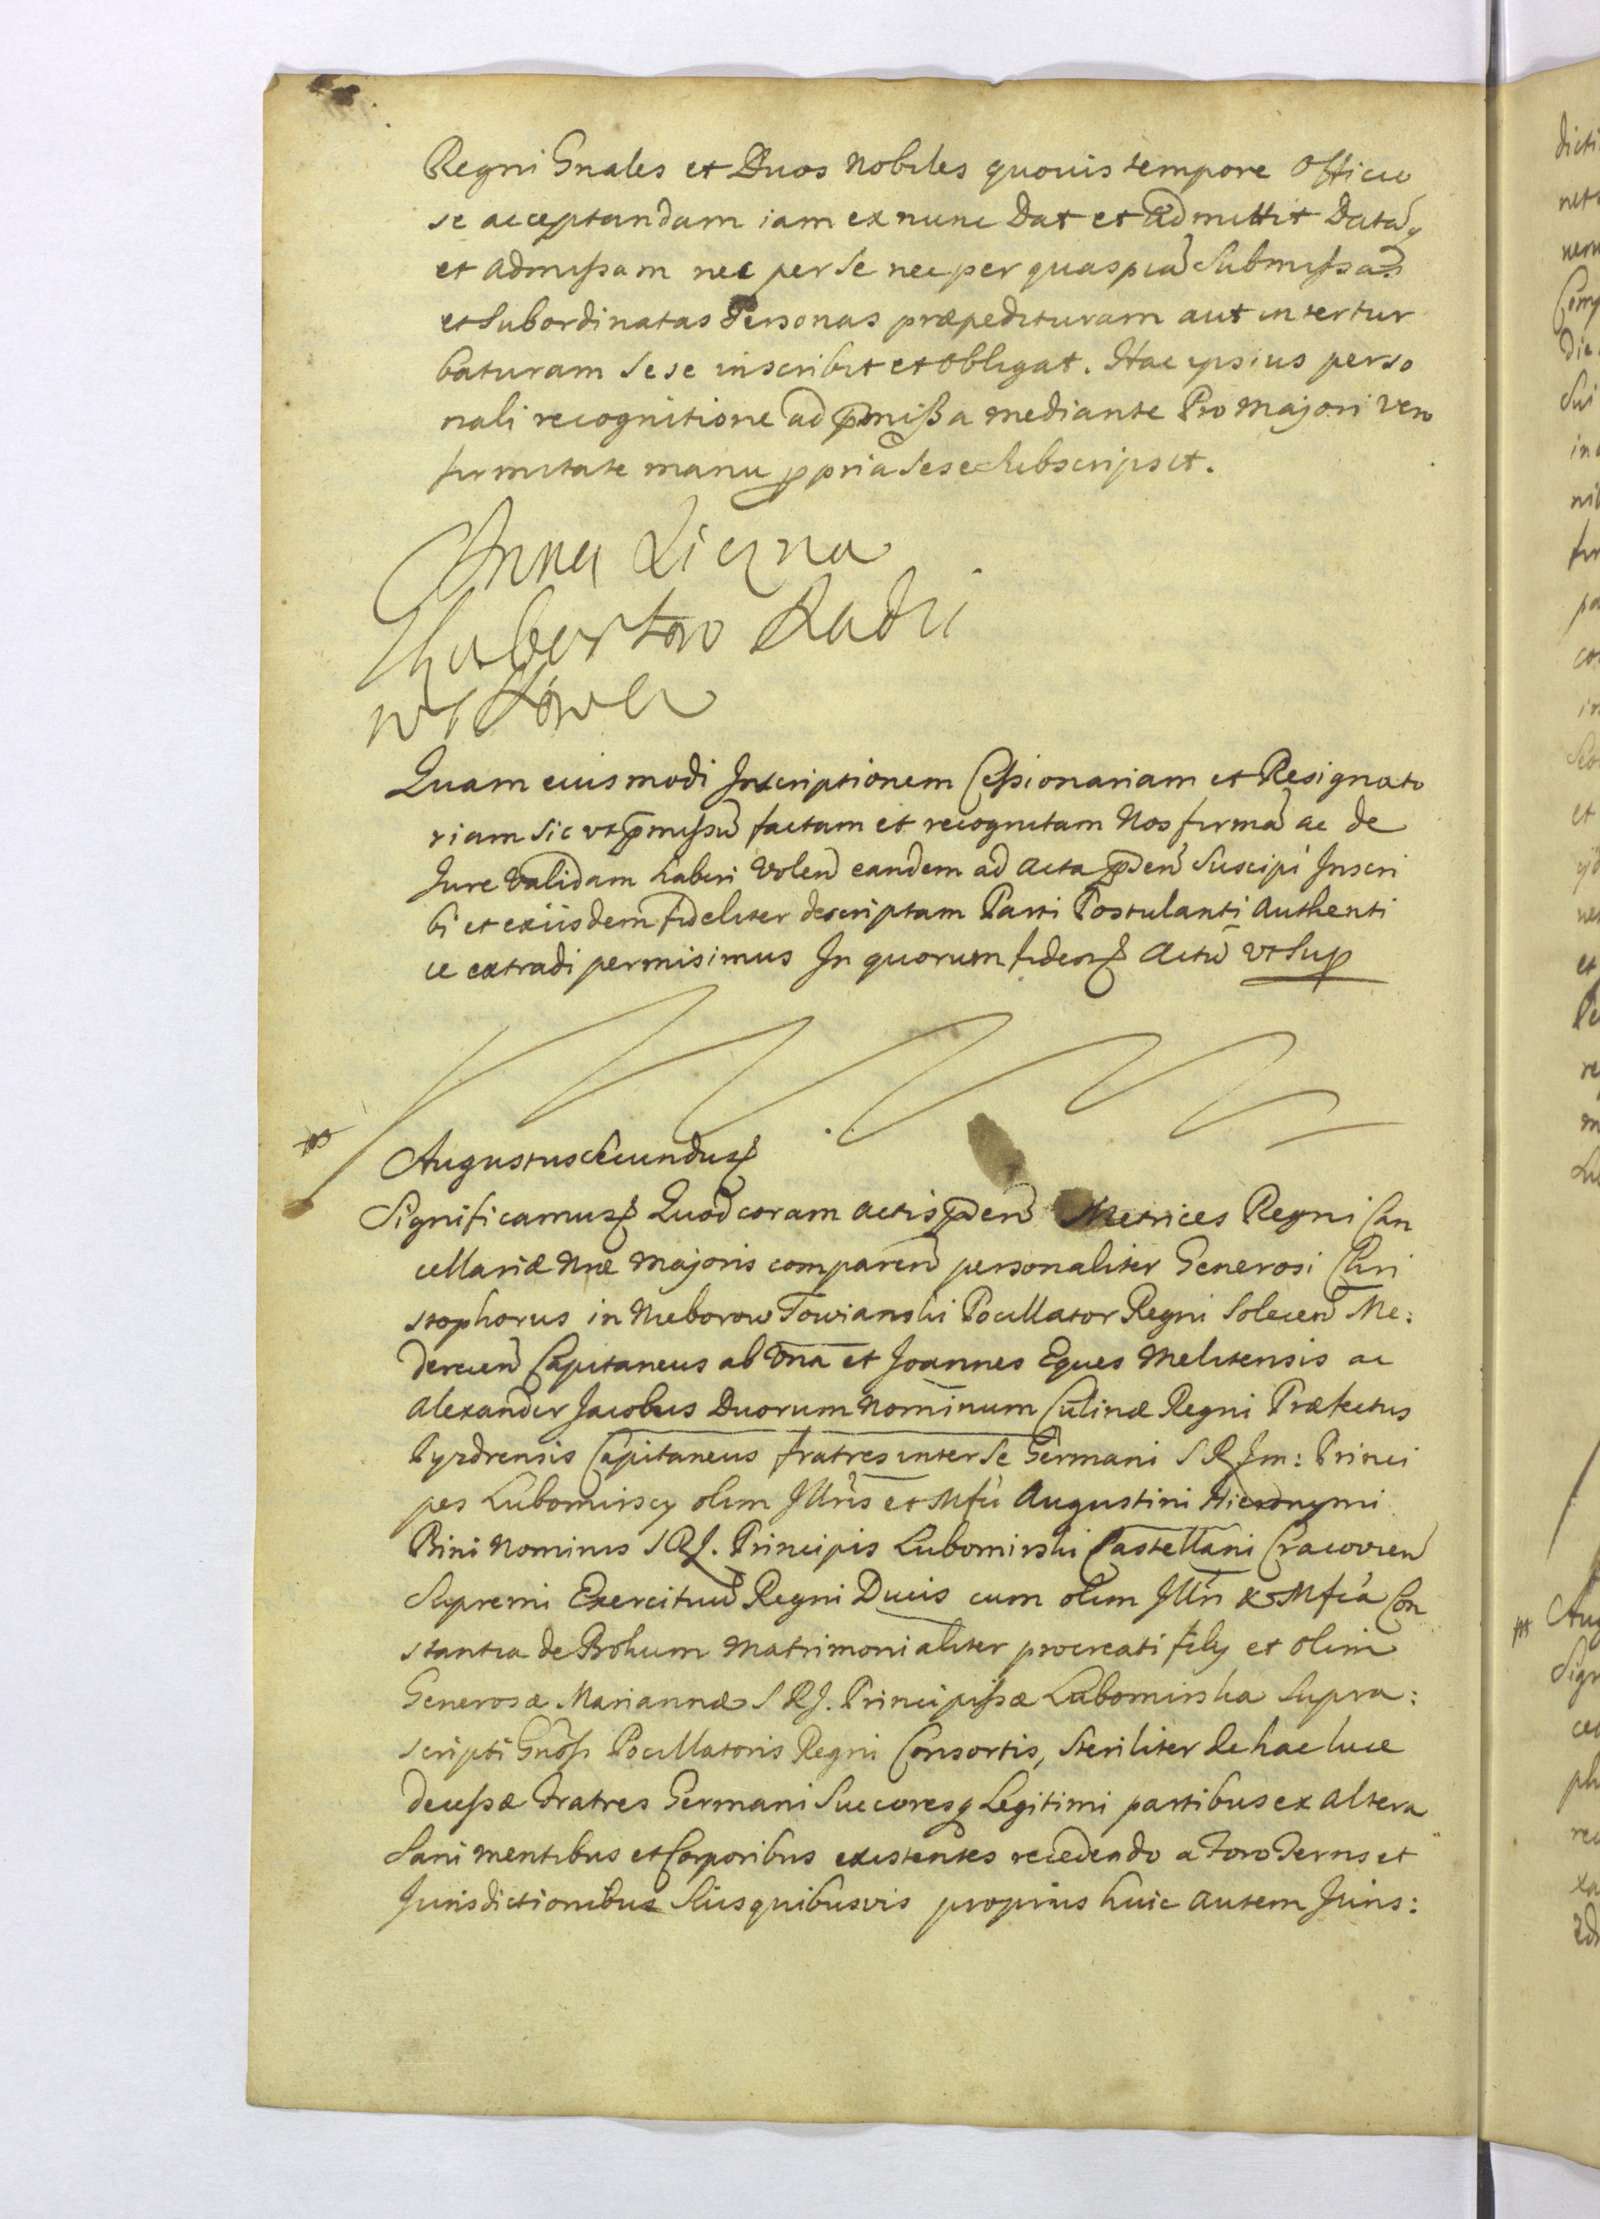 Regni Gnales et Duos Nobiles quouis tempore Officio
se acceptandam iam ex nunc Dat et admittit Datāq
et admissam nec per se nec per quaspiā Submissas
et Subordinatas Personas præpedituram aut intertur
baturam sese inscribit et obligat. Hac ipsius perso
nali recognitione ad pmissa mediante Pro Majori vero
firmitate manu ppria sese subscripsit.
Anna
Quam eiusmodi Inscriptionem Cessionariam et Resignato
riam sic vt pmissū factam et recognitam Nos firmā ac de
Jure validam haberi Volen eandem ad acta pden Suscipi Inscri
bi et exiisdem fideliter descriptam Parti Postulanti Authenti
ce extradi permisimus In quorum fidem Actū vt Sup
Augustus Secundus
Significamus Quod coram actis pden Metrices Regni Can
cellariæ Nræ Majoris comparen personaliter Generosi Chri
stophorus in Nieborow Towianski Pocillator Regni Solecen Me:
derecen Capitaneus ab vna et Joannes Eques Melitensis ac
Alexander Jacobus Duorum Nominum Culinæ Regni Præfectus
Pyzdrensis Capitaneus fratres inter se Germani S R Im: Princi
pes Lubomirscy olim Illris et Mfci Augustini Hieronymi
Bini Nominis S R J. Principis Lubomirski Castellani Cracovien
Supremi Exercituū Regni Ducis cum olim Illri & Mfca Con
stantia de Bokum Matrimonialiter procreati filij et olim
Generosæ Mariannæ S R J. Principissæ Lubomirska Supra:
scripti Gnosi Pocillatoris Regni Consortis, steriliter de hac luce
decessæ Fratres Germani Succoresq Legitimi partibus ex altera
Sani mentibus et Corporibus existentes recedendo a Foro Terris et
Jurisdictionibus Suis quibusvis proprijs huic autem Juris: